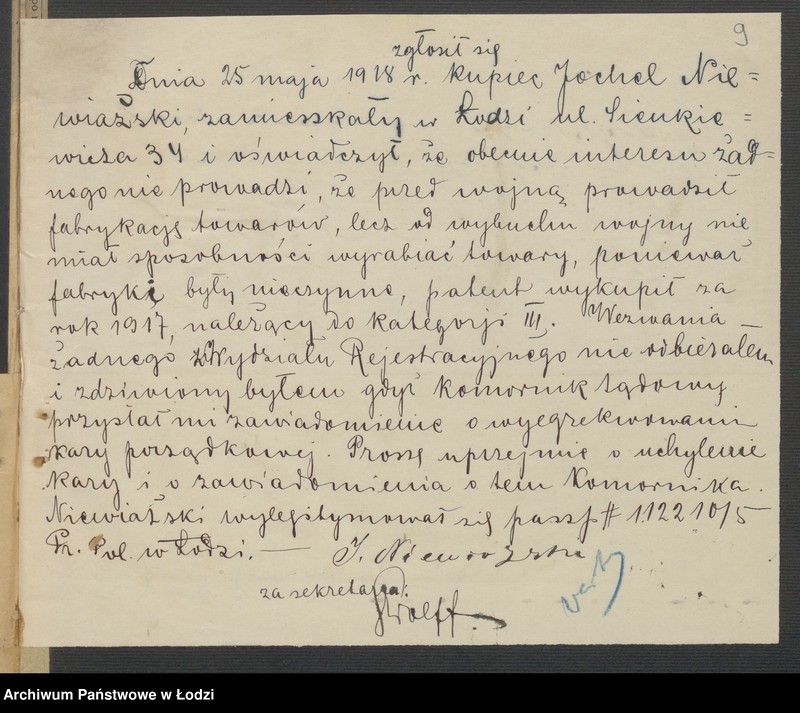 9
zgłosił się
Dnia 25 maja 1918 r. kupiec Jochel Nie=
wiażski, zamieszkały w Łodzi ul. Sienkie=
wicza 34 i oświadczył, że obecnie interesu żad=
nego nie prowadzi, że przed wojną prowadził
fabrykację towarów, lecz od wybuchu wojny nie
miał sposobności wyrabiać towary, ponieważ
fabryki były nieczynne, patent wykupił za
rok 1917, należący do kategorji III. Wezwania
żadnego z Wydziału Rejestracyjnego nie odbierałem
i zdziwiony byłem gdyż Komornik Sądowy
przysłał mi zawiadomienie o wyegzekwowaniu
kary porządkowej. Proszę uprzejmie o uchylenie
kary i o zawiadomienia o tem Komornika.
Niewiażski wylegitymował się paszp # 112210/5
Pr. Pol. w Łodzi. — J. Niewiażski
za sekretarza:
Wolff